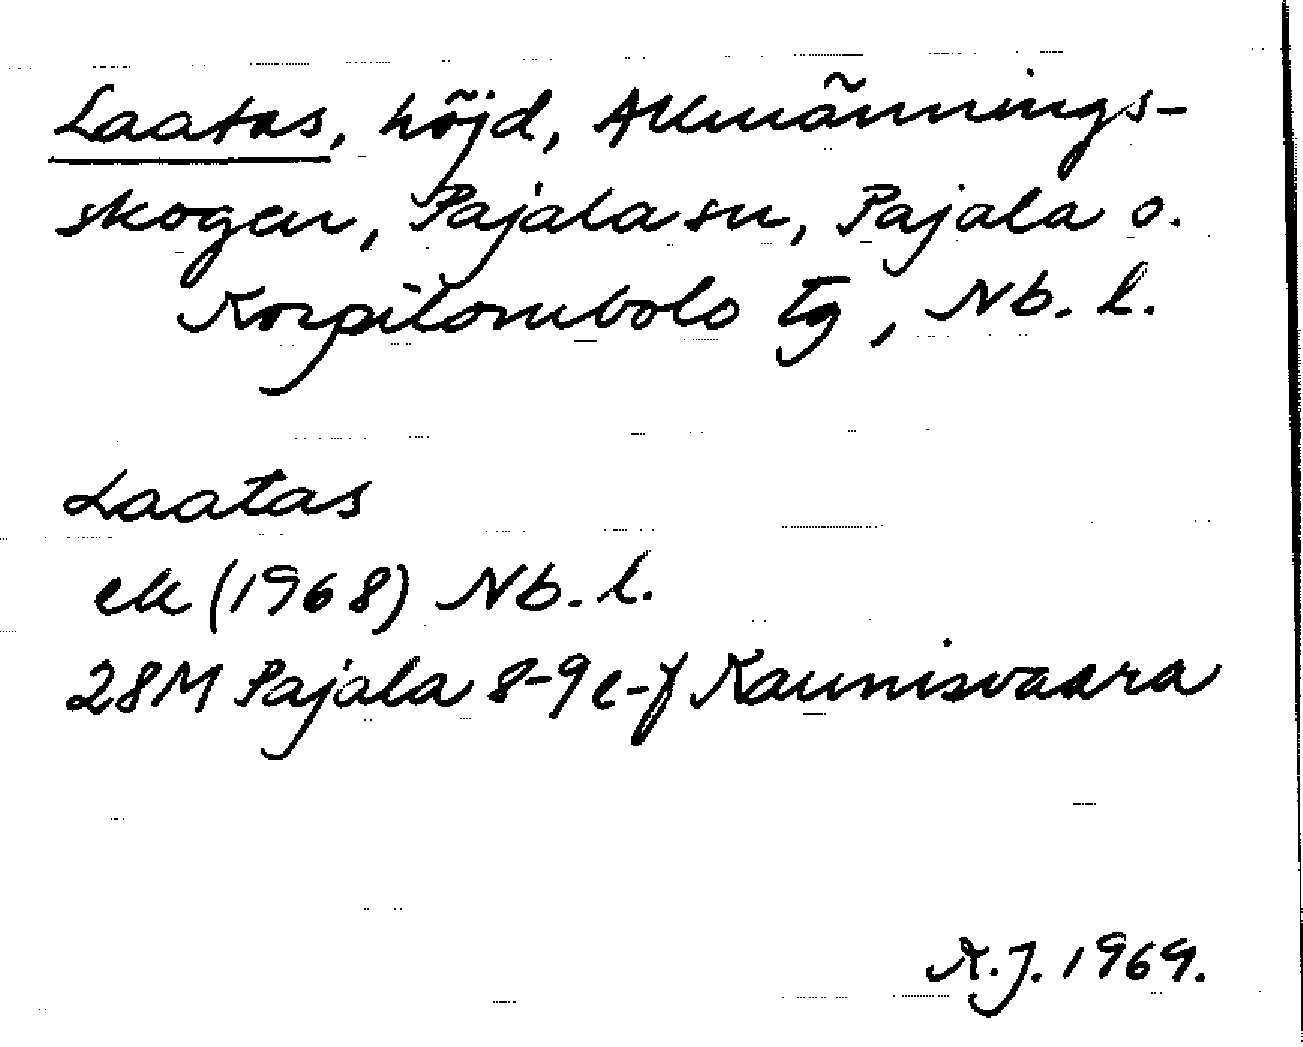 Laatas, höjd, Allmännings-
skogen, Pajala sn, Pajala o.
Korpilombolo tg, Nb. l.
Laatas
ek (1968) Nb. l.
28M Pajala 8-9 e-f Kaunisvaara
A.J. 1969.